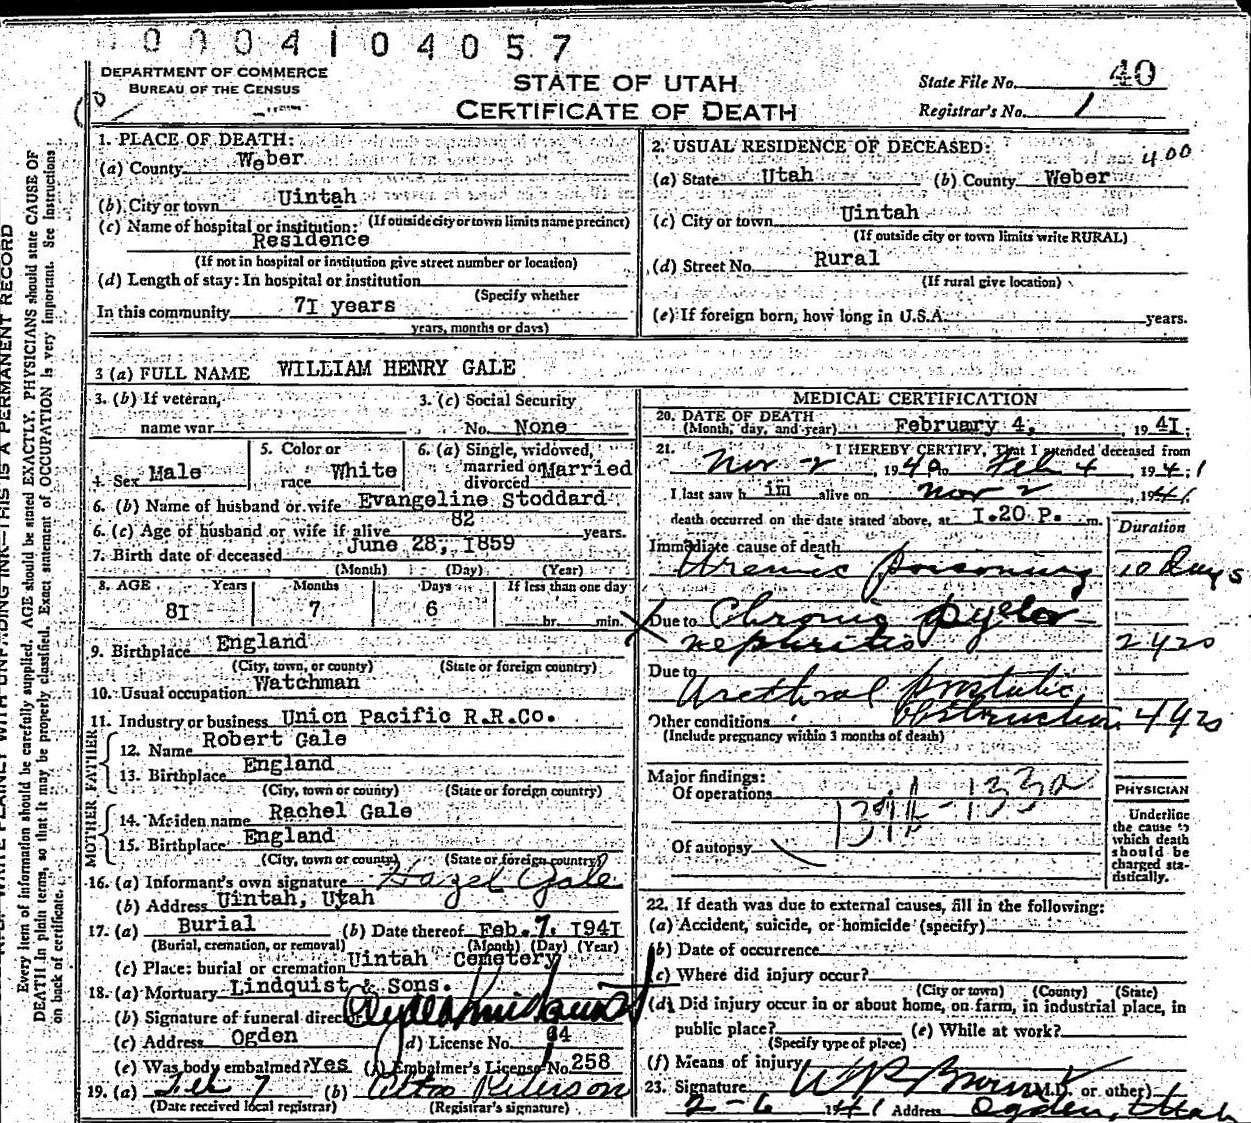 0004104057
DEPARTMENT OF COMMERCE
BUREAU OF THE CENSUS
STATE OF UTAH
CERTIFICATE OF DEATH
State File No. 40
Registrar's No. 1
1. PLACE OF DEATH:
(a) County Weber
(b) City or town Uintah
(If outside city or town limits name precinct)
(c) Name of hospital or institution:
Residence
(If not in hospital or institution give street number or location)
(d) Length of stay: In hospital or institution
(Specify whether
In this community 71 years
years, months or days)
2. USUAL RESIDENCE OF DECEASED:
400
(a) State Utah (b) County Weber
(c) City or town Uintah
(If outside city or town limits write RURAL)
(d) Street No. Rural
(If rural give location)
(e) If foreign born, how long in U.S.A. years.
3 (a) FULL NAME WILLIAM HENRY GALE
3. (b) If veteran, name war
3. (c) Social Security No. None
4. Sex Male
5. Color or race White
6. (a) Single, widowed, married or divorced Married
6. (b) Name of husband or wife Evangeline Stoddard
6. (c) Age of husband or wife if alive 82 years.
7. Birth date of deceased June 28, 1859
(Month) (Day) (Year)
8. AGE Years Months Days If less than one day
81 7 6 hr. min.
9. Birthplace England
(City, town, or county) (State or foreign country)
10. Usual occupation Watchman
11. Industry or business Union Pacific R.R.Co.
FATHER
12. Name Robert Gale
13. Birthplace England
(City, town or county) (State or foreign country)
MOTHER
14. Maiden name Rachel Gale
15. Birthplace England
(City, town or county) (State or foreign country)
16. (a) Informant's own signature Hazel Gale
(b) Address Uintah, Utah
17. (a) Burial (b) Date thereof Feb. 7, 1941
(Burial, cremation, or removal) (Month) (Day) (Year)
(c) Place: burial or cremation Uintah Cemetery
18. (a) Mortuary Lindquist & Sons.
(b) Signature of funeral director
(c) Address Ogden (d) License No. 64
(e) Was body embalmed? Yes (f) Embalmer's License No. 258
19. (a) Feb 7 (b) Peterson
(Date received local registrar) (Registrar's signature)
MEDICAL CERTIFICATION
20. DATE OF DEATH
(Month, day, and year) February 4, 1941:
21. I HEREBY CERTIFY, That I attended deceased from
Nov 2 1940 to Feb 4 1941
I last saw h im alive on Nov 2, 1941
death occurred on the date stated above, at 1.20 P. m.
Duration
Immediate cause of death
Uremic poisoning 10 days
Due to Chronic pyelo
nephritis 2 yrs
Due to
Urethral prostatic
Other conditions obstruction 4 yrs
(Include pregnancy within 3 months of death)
Major findings:
Of operations
Of autopsy
PHYSICIAN
Underline
the cause to
which death
should be
charged sta-
tistically.
22. If death was due to external causes, fill in the following:
(a) Accident, suicide, or homicide (specify)
(b) Date of occurrence
(c) Where did injury occur?
(City or town) (County) (State)
(d) Did injury occur in or about home, on farm, in industrial place, in
public place? (e) While at work?
(Specify type of place)
(f) Means of injury
23. Signature W R Brown (M.D. or other)
2-6 1941 Address Ogden, Utah
WRITE PLAINLY WITH UNFADING INK—THIS IS A PERMANENT RECORD
Every item of information should be carefully supplied. AGE should be stated EXACTLY. PHYSICIANS should state CAUSE OF
DEATH in plain terms, so that it may be properly classified. Exact statement of OCCUPATION is very important. See instructions
on back of certificate.